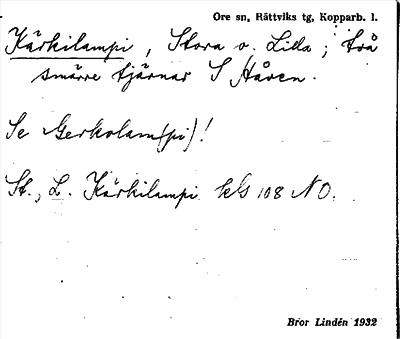 Ore sn, Rättviks tg, Kopparb. l.
Kärkilampi, Stora o. Lilla; två
smärre tjärnar S Håven.
Se Gerkolam(pi)!
St., L. Kärkilampi kbs 108 NO.
Bror Lindén 1932